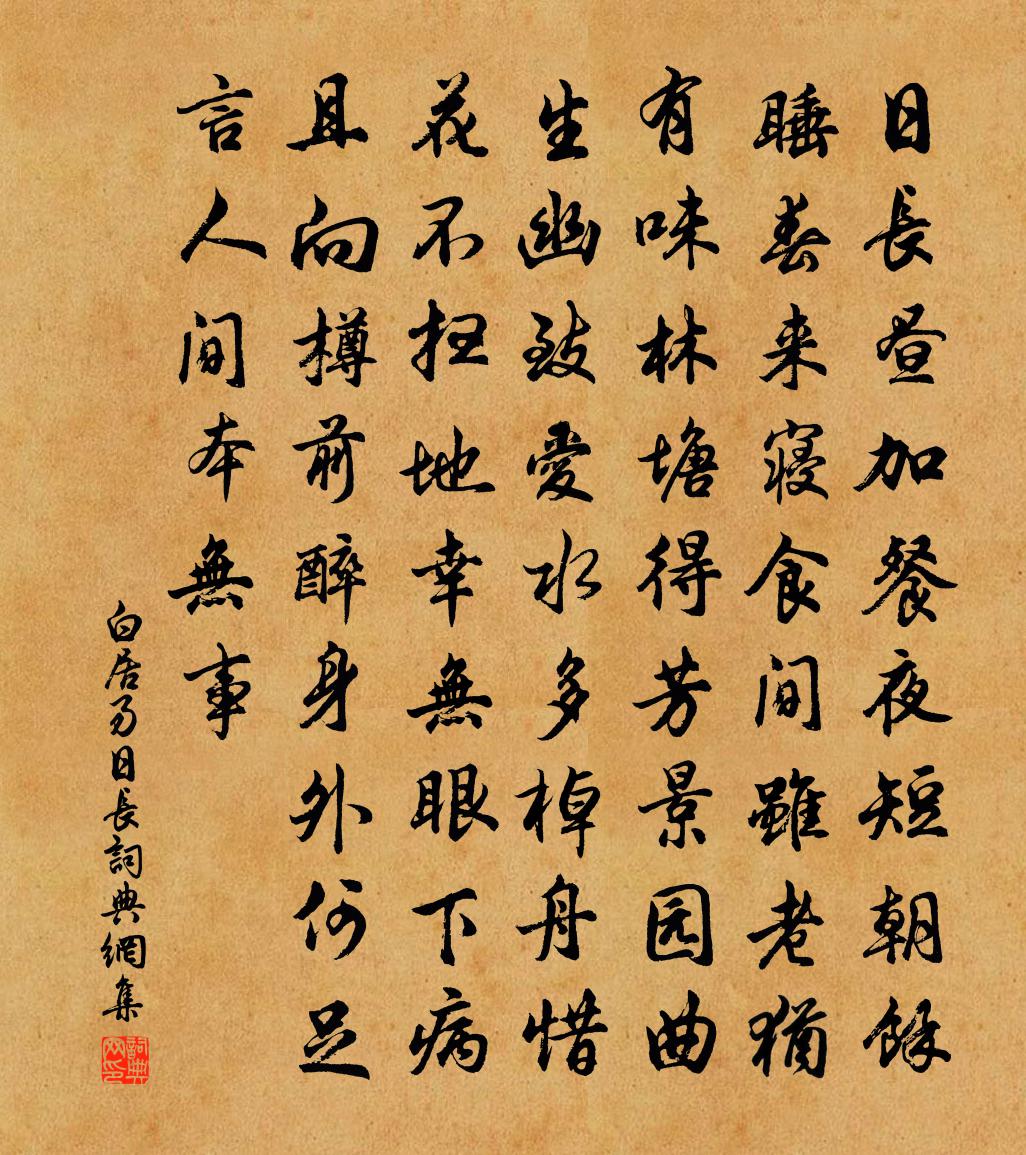 日長昼加餐夜短朝餘
睡春来寝食間雖老猶
有味林塘得芳景园曲
生幽致愛水多棹舟惜
花不扫地幸無眼下病
且向樽前醉身外何足
言人間本無事
白居易日長詞典網集
詞典网印